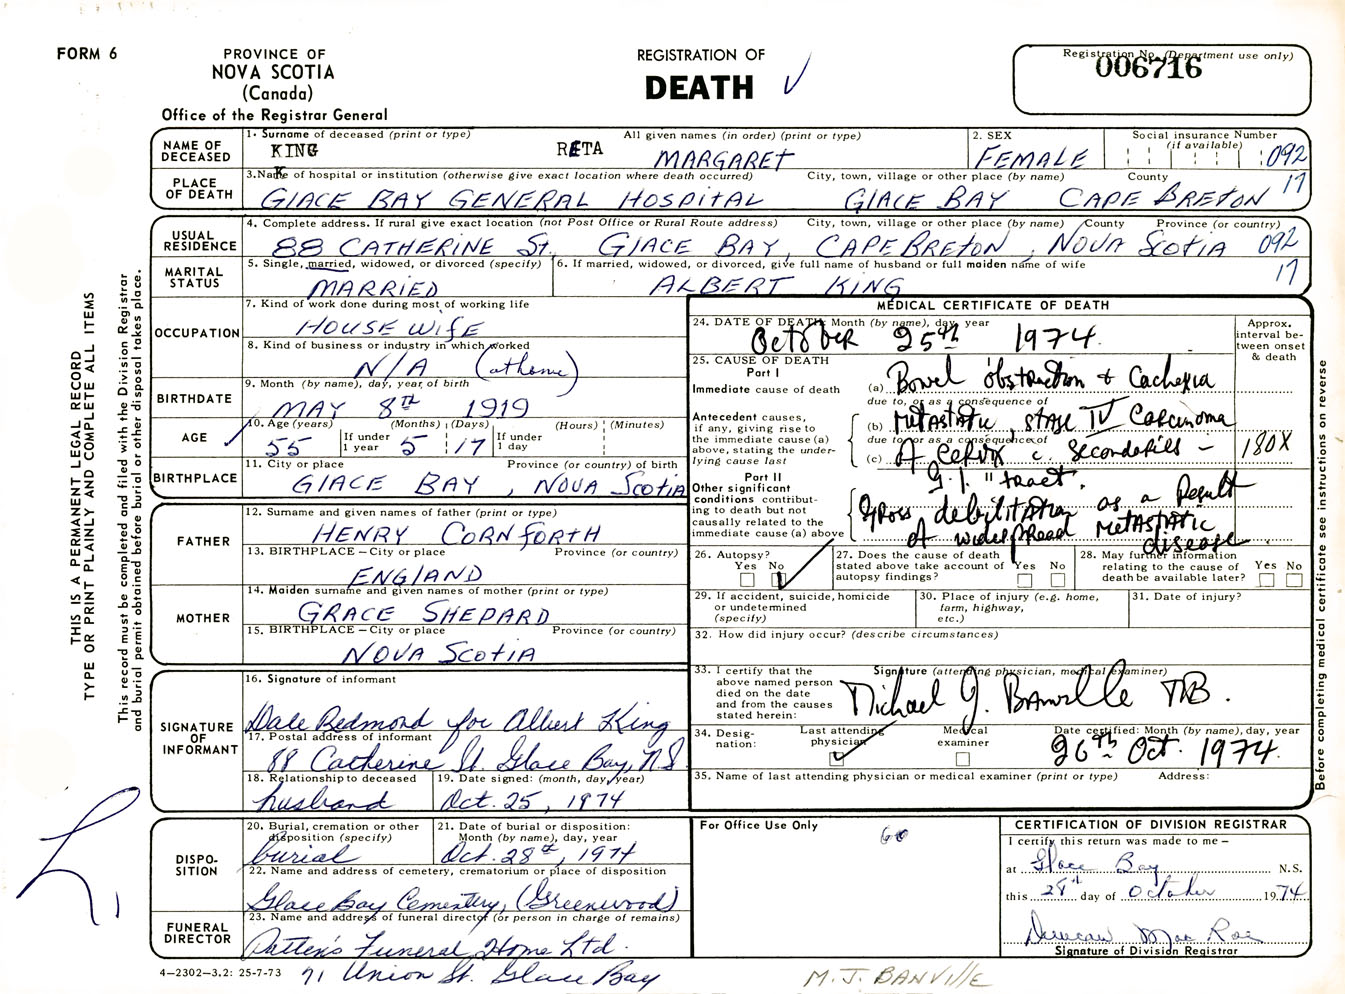 FORM 6
PROVINCE OF
NOVA SCOTIA
(Canada)
Office of the Registrar General
REGISTRATION OF
DEATH
Registration No. (Department use only)
006716
THIS IS A PERMANENT LEGAL RECORD
TYPE OR PRINT PLAINLY AND COMPLETE ALL ITEMS
This record must be completed and filed with the Division Registrar
and burial permit obtained before burial or other disposal takes place.
NAME OF DECEASED
1. Surname of deceased (print or type) All given names (in order) (print or type)
KING RETA MARGARET
2. SEX
FEMALE
Social insurance Number
(if available)
092
17
PLACE OF DEATH
3. Name of hospital or institution (otherwise give exact location where death occurred) City, town, village or other place (by name) County
GLACE BAY GENERAL HOSPITAL GLACE BAY CAPE BRETON
USUAL RESIDENCE
4. Complete address. If rural give exact location (not Post Office or Rural Route address) City, town, village or other place (by name) County Province (or country)
88 CATHERINE St. GLACE BAY, CAPE BRETON, NOVA SCOTIA 092
17
MARITAL STATUS
5. Single, married, widowed, or divorced (specify)
MARRIED
6. If married, widowed, or divorced, give full name of husband or full maiden name of wife
ALBERT KING
OCCUPATION
7. Kind of work done during most of working life
HOUSE WIFE
8. Kind of business or industry in which worked
N/A (at home)
BIRTHDATE
9. Month (by name), day, year of birth
MAY 8TH 1919
AGE
10. Age (years) (Months) (Days) (Hours) (Minutes)
If under 1 year If under 1 day
55 5 17
BIRTHPLACE
11. City or place Province (or country) of birth
GLACE BAY, NOVA SCOTIA
FATHER
12. Surname and given names of father (print or type)
HENRY CORNFORTH
13. BIRTHPLACE – City or place Province (or country)
ENGLAND
MOTHER
14. Maiden surname and given names of mother (print or type)
GRACE SHEPARD
15. BIRTHPLACE – City or place Province (or country)
NOVA SCOTIA
SIGNATURE OF INFORMANT
16. Signature of informant
Dale Redmond for Albert King
17. Postal address of informant
88 Catherine St. Glace Bay, N.S.
18. Relationship to deceased
husband
19. Date signed: (month, day, year)
Oct. 25, 1974
DISPO-SITION
20. Burial, cremation or other disposition (specify)
burial
21. Date of burial or disposition: Month (by name), day, year
Oct. 28th, 1974
22. Name and address of cemetery, crematorium or place of disposition
Glace Bay Cementery, (Greenwood)
FUNERAL DIRECTOR
23. Name and address of funeral director (or person in charge of remains)
Patten's Funeral Home Ltd.
71 Union St. Glace Bay
4–2302–3.2: 25-7-73
MEDICAL CERTIFICATE OF DEATH
24. DATE OF DEATH: Month (by name), day, year
October 25th 1974.
Approx. interval be-tween onset & death
25. CAUSE OF DEATH
Part I
Immediate cause of death
(a) Bowel obstruction & Cachexia
due to, or as a consequence of
Antecedent causes, if any, giving rise to the immediate cause (a) above, stating the under-lying cause last
(b) Metastatic, stage IV Carcinoma
due to or as a consequence of
(c) of cervix c. Secondaries –
180X
G.I. "tract.
Part II
Other significant conditions contribut-ing to death but not causally related to the immediate cause (a) above
Gross debilitation as a Result
of widespread metastatic
disease.
26. Autopsy?
Yes No
27. Does the cause of death stated above take account of autopsy findings?
Yes No
28. May further information relating to the cause of death be available later?
Yes No
29. If accident, suicide, homicide or undetermined (specify)
30. Place of injury (e.g. home, farm, highway, etc.)
31. Date of injury?
32. How did injury occur? (describe circumstances)
33. I certify that the above named person died on the date and from the causes stated herein:
Signature (attending physician, medical examiner)
Michael J. Banville
34. Desig-nation:
Last attending physician
Medical examiner
Date certified: Month (by name), day, year
26th Oct. 1974.
35. Name of last attending physician or medical examiner (print or type) Address:
Before completing medical certificate see instructions on reverse
For Office Use Only
60
CERTIFICATION OF DIVISION REGISTRAR
I certify this return was made to me –
at Glace Bay N.S.
this 28th day of October 1974
Duncan Mac Rae
Signature of Division Registrar
M. J. BANVIllE